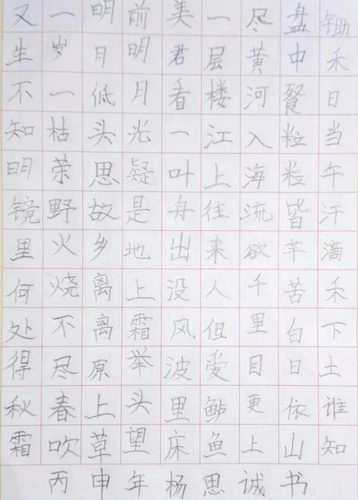 锄禾日当午汗滴禾下土谁知
盘中餐粒粒皆辛苦白日依山
尽黄河入海流欲千里目更上
一层楼江上往来人但爱鲈鱼
美君看一叶舟出没风波里床
前明月光疑是地上霜举头望
明月低头思故乡离离原上草
一岁一枯荣野火烧不尽春吹
又生不知明镜里何处得秋霜
丙申年杨思诚书